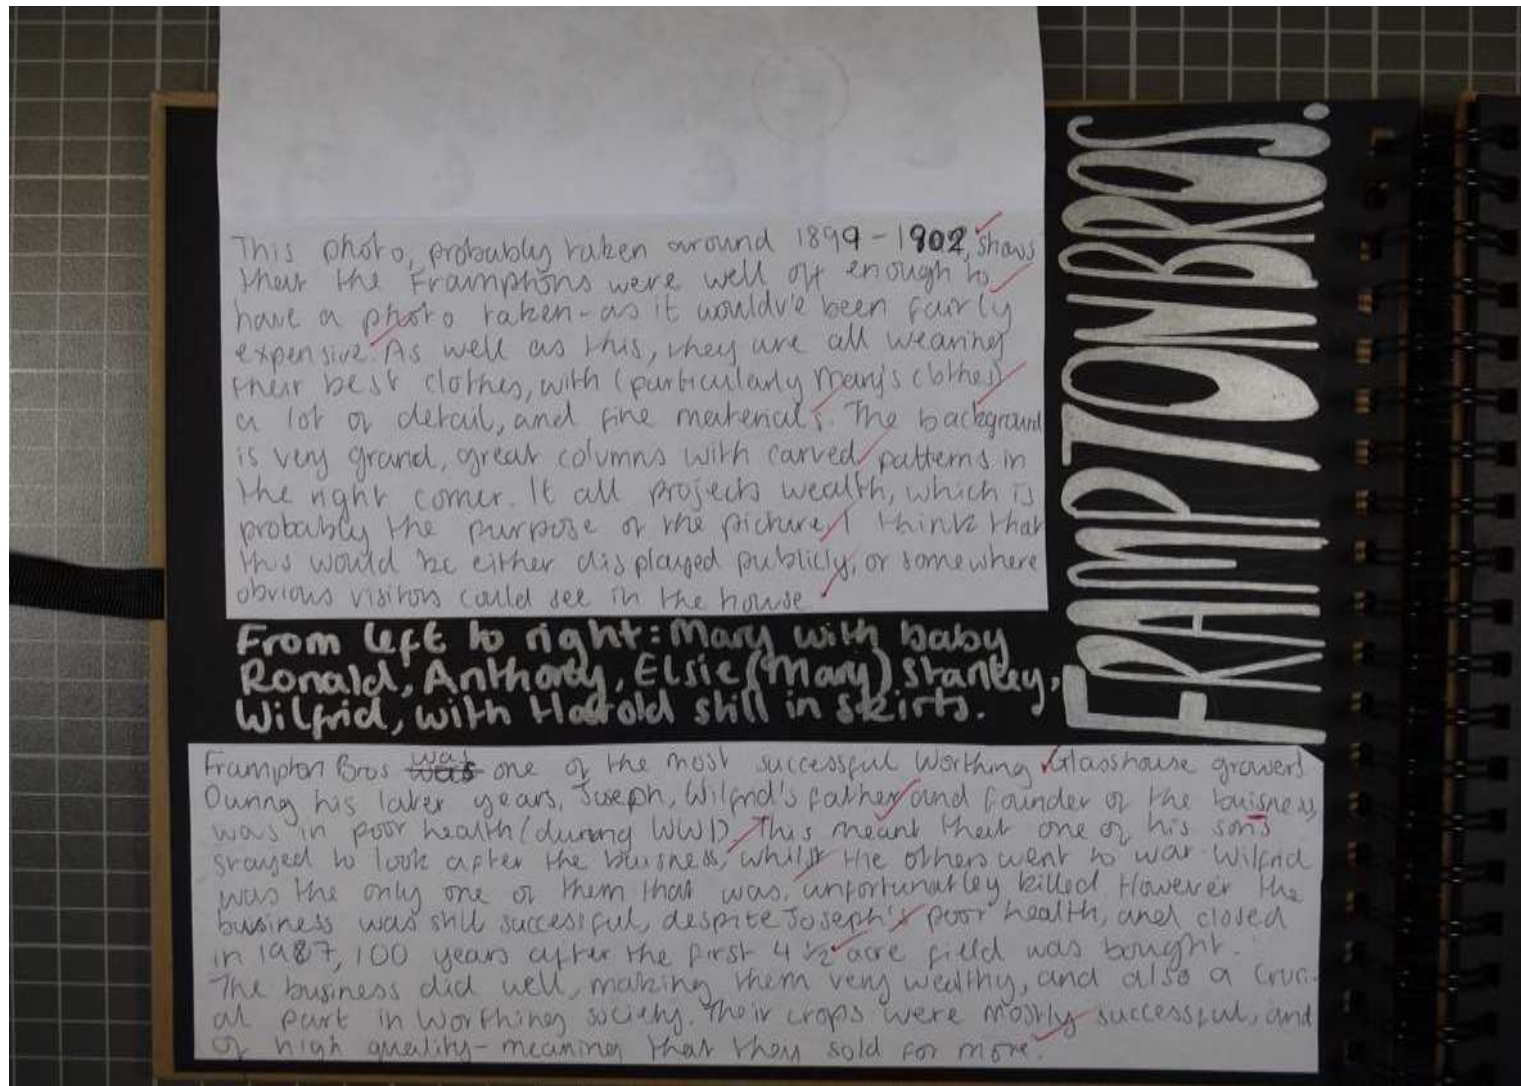 This photo, probably taken around 1899-1902, shows
that the Framptons were well off enough to
have a photo taken-as it wouldv'e been fairly
expensive. As well as this, they are all wearing
their best clothes, with (particularly Mary's clothes)
a lot of detail, and fine materials. The background
is very grand, great columns with carved patterns in
the right corner. It all projects wealth, which is
probably the purpose of the picture, I think that
this would be either displayed publicly, or somewhere
obvious visitors could see in the house
From left to right: Mary with baby
Ronald, Anthony, Elsie (Mary) Stanley,
Wilfrid, with Harold still in skirts.
FRAMPTON BROS.
Frampton Bros was one of the most successful Worthing Glasshouse growers
During his later years, Joseph, Wilfrid's father and founder of the buisness,
was in poor health (during WW1). This meant that one of his sons
stayed to look after the buisness, whilst the others went to war. Wilfrid
was the only one of them that was, unfortunatley killed. However the
business was still successful, despite Joseph's poor health, and closed
in 1987, 100 years after the first 4 ½ acre field was bought.
The business did well, making them very wealthy, and also a cruci-
al part in Worthing society. Their crops were mostly successful, and
of high quality-meaning that they sold for more.